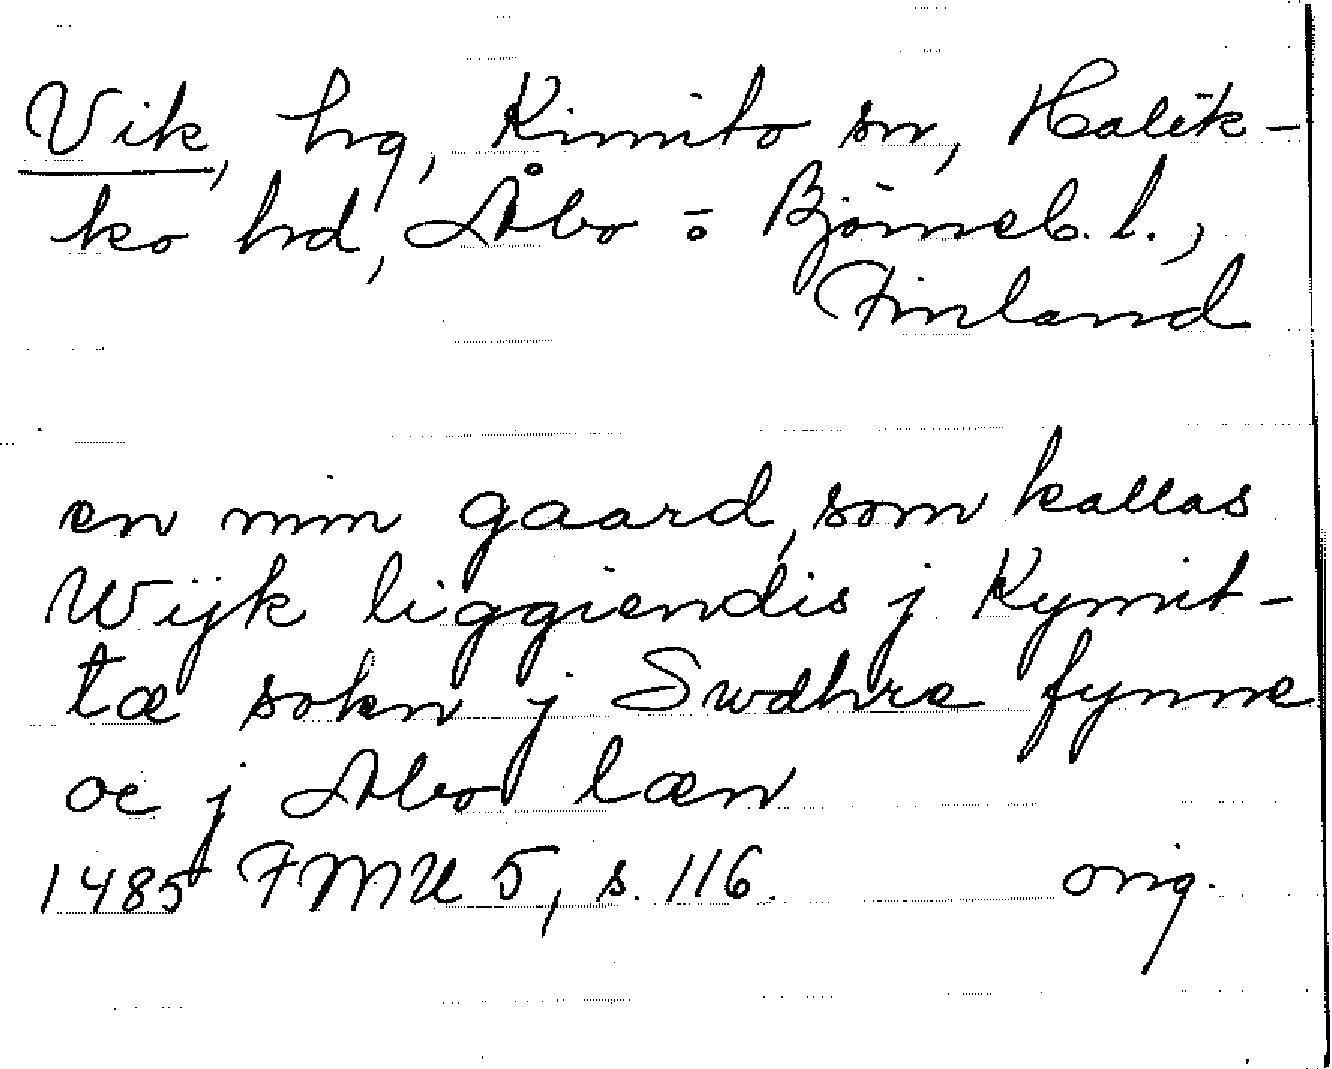 Vik, hg, Kimito sn, Halik-
ko hd, Åbo-o. Björneb. l.,
Finland
en min gaard, som kallas
Wijk liggiendis j Kymit-
tæ sokn j Swdhre fynne
oc j Abo læn
1485 FMU 5, s. 116. orig.